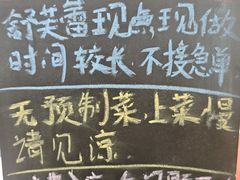 舒芙蕾现点现做
时间较长，不接急单
无预制菜，上菜慢
请见凉